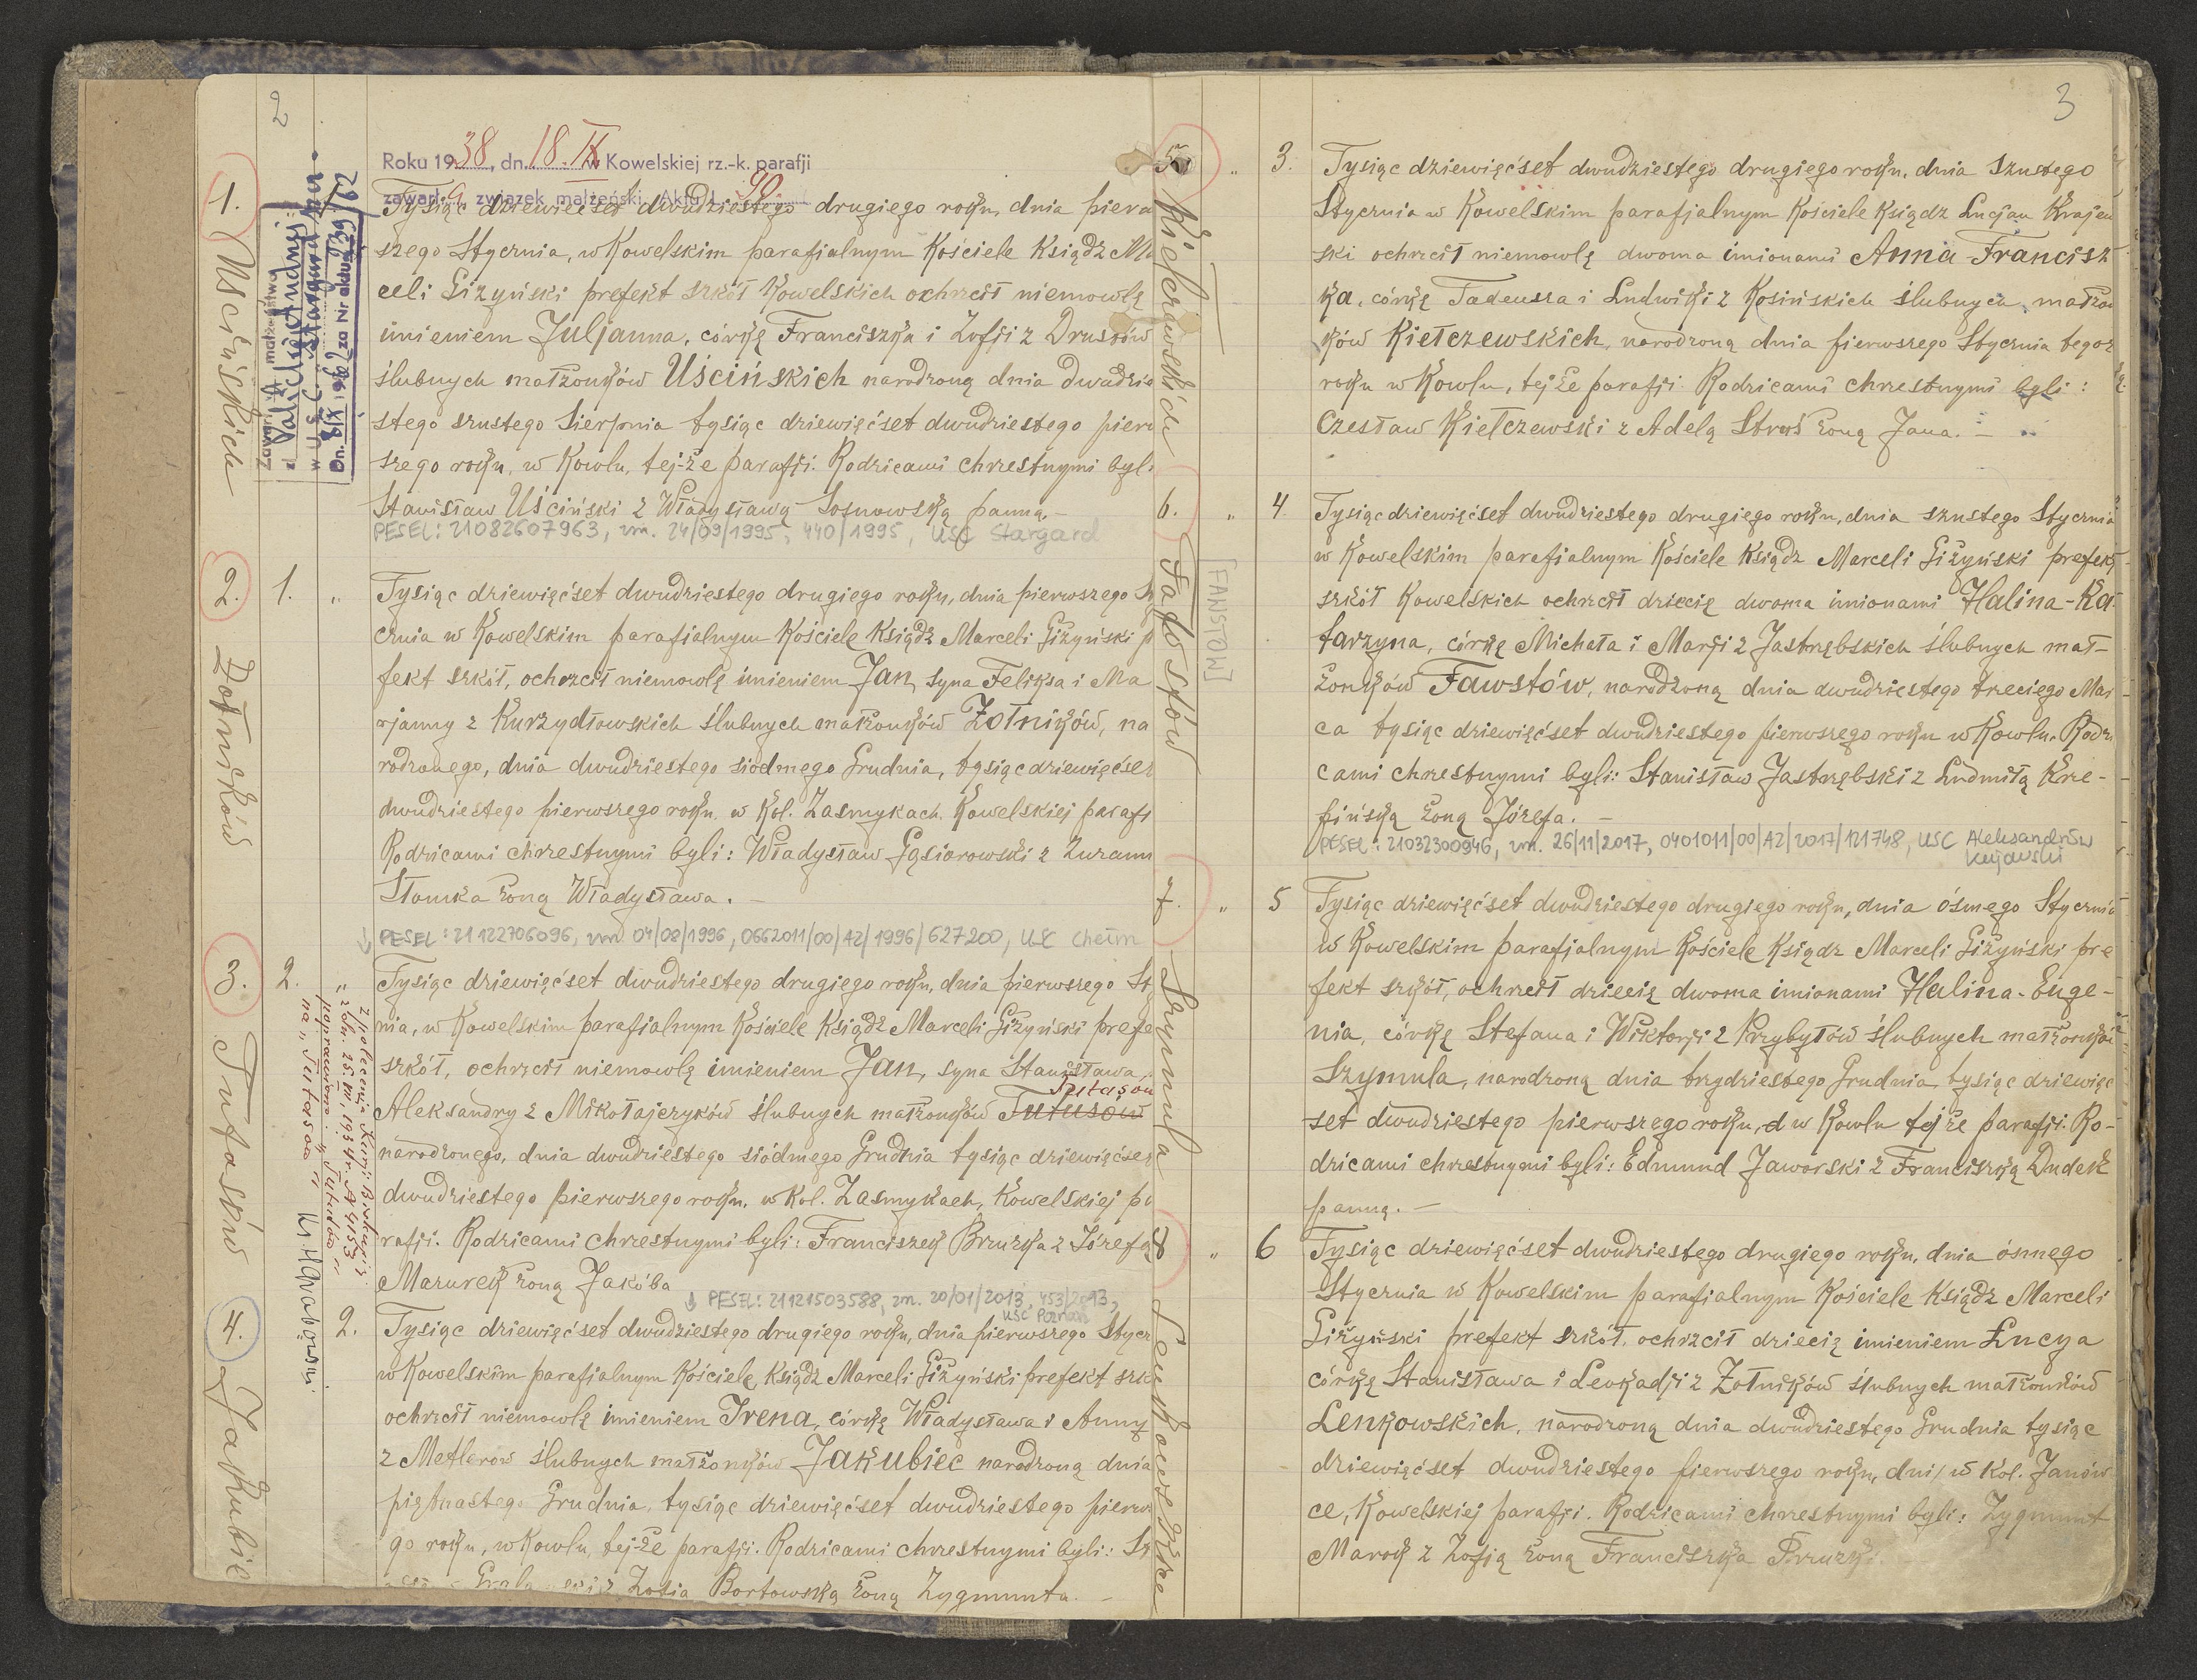 2
1.
Uścińskich
Roku 1938, dn. 18.IX w Kowelskiej rz.-k. parafji
zawarła związek małżeński. Akt № 90.
Tysiąc dziewięćset dwudziestego drugiego roku, dnia pierw
szego Stycznia, w Kowelskim parafialnym Kościele Ksiądz Ma
celi Giżyński prefekt szkół Kowelskich ochrzcił niemowlę
imieniem Juljanna, córkę Franciszka i Zofji z Drustów
ślubnych małżonków Uścińskich narodzoną dnia dwudzie
stego szustego Sierpnia tysiąc dziewięćset dwudziestego pierw
szego roku, w Kowlu, tej-że parafji. Rodzicami chrzestnymi byli
Stanisław Uściński z Władysławą Sosnowską panną.-
PESEL: 21082607963, zm. 24/09/1995, 440/1995, USC Stargard
2.
Żołników
1. "
Tysiąc dziewięćset dwudziestego drugiego roku, dnia pierwszego St
cznia w Kowelskim parafjalnym Kościele Ksiądz Marceli Giżyński p
fekt szkół, ochrzcił niemowlę imieniem Jan, syna Feliksa i Ma
rjanny z Kurzydłowskich ślubnych małżonków Żołników, na
rodzonego, dnia dwudziestego siódmego Grudnia, tysiąc dziewięćset
dwudziestego pierwszego roku, w Kol. Zasmykach Kowelskiej parafi
Rodzicami chrzestnymi byli: Władysław Gąsiorowski z Zuzann
Słomka żoną Władysława. -
↓ PESEL: 21122706096, zm 04/02/1996, 0662011/00/AZ/1996/627200, USC Chełm
3.
Tutasów
2. "
Tysiąc dziewięćset dwudziestego drugiego roku, dnia pierwszego St
nia, w Kowelskim parafjalnym Kościele Ksiądz Marceli Giżyński prefe
szkół, ochrzcił niemowlę imieniem Jan, syna Stanisława
Aleksandry z Mikołajczyków ślubnych małżonków Tutusow
narodzonego, dnia dwudziestego siódmego Grudnia tysiąc dziewięćset
dwudziestego pierwszego roku, w Kol. Zasmykach, Kowelskiej pa
rafji. Rodzicami chrzestnymi byli: Franciszek Bruzka z Józefą
Mazurek żoną Jakóba
↓ PESEL: 21121503588, zm. 20/01/2013, 453/2013,
USC Poznań
4.
Jakubie
2.
Tysiąc dziewięćset dwudziestego drugiego roku, dnia pierwszego Stycz
w Kowelskim parafjalnym Kościele, Ksiądz Marceli Giżyński prefekt szk
ochrzcił niemowlę imieniem Irena, córkę Władysława i Anny
z Metlerów ślubnych małżonków Jakubiec narodzoną dnia
piętnastego Grudnia, tysiąc dziewięćset dwudziestego pierw
go roku, w Kowlu, tej-że parafji. Rodzicami chrzestnymi byli: St
Zofia Bortowską żoną Zygmunta. -
3
5
Kiełczewskich
" 3.
Tysiąc dziewięćset dwudziestego drugiego roku, dnia szustego
Stycznia w Kowelskim parafjalnym Kościele Ksiądz Lucjan Krajew
ski ochrzcił niemowlę dwoma imionami Anna-Francisz
ka, córkę Tadeusza i Ludwiki z Kosińskich ślubnych małżon
ków Kiełczewskich, narodzoną dnia pierwszego Stycznia tegoż
roku w Kowlu, tejże parafji. Rodzicami chrzestnymi byli:
Czesław Kiełczewski z Adelą Struś żoną Jana. -
6.
Fafostów
[FAWSTOW]
" 4
Tysiąc dziewięćset dwudziestego drugiego roku, dnia szustego Stycznia
w Kowelskim parafjalnym Kościele Ksiądz Marceli Giżyński prefekt
szkół Kowelskich ochrzcił dziecię dwoma imionami Halina-Ka
tarzyna, córkę Michała i Marji z Jastrzębskich ślubnych mał-
żonków Fawstów, narodzoną dnia dwudziestego trzeciego Mar
ca tysiąc dziewięćset dwudziestego pierwszego roku w Kowlu. Rodzi
cami chrzestnymi byli: Stanisław Jastrzębski z Ludmiłą Krze-
pińską żoną Józefa. -
PESEL: 21032300946, zm. 26/11/2017, 0401011/00/AZ/2017/121748, USC Aleksandrów
Kujawski
7.
Szymula
" 5
Tysiąc dziewięćset dwudziestego drugiego roku, dnia ósmego Stycznia
w Kowelskim parafjalnym Kościele Ksiądz Marceli Giżyński pre
fekt szkół, ochrzcił dziecię dwoma imionami Halina-Euge-
nia, córkę Stefana i Wiktorji z Przybyłów ślubnych małżonków
Szymula, narodzoną dnia trzydziestego Grudnia tysiąc dziewięć
set dwudziestego pierwszego roku, w Kowlu tejże parafji. Ro-
dzicami chrzestnymi byli: Edmund Jaworski z Franciszką Dudek
panną. -
8
Lenkowskich
" 6
Tysiąc dziewięćset dwudziestego drugiego roku, dnia ósmego
Stycznia w Kowelskim parafjalnym Kościele Ksiądz Marceli
Giżyński prefekt szkół, ochrzcił dziecię imieniem Łucya
córkę Stanisława i Leokadji z Żołników ślubnych małżonków
Lenkowskich, narodzoną dnia dwudziestego Grudnia tysiąc
dziewięćset dwudziestego pierwszego roku, w Kol. Janów
ce, Kowelskiej parafji. Rodzicami chrzestnymi byli: Zygmunt
Marok z Zofją żoną Franciszka